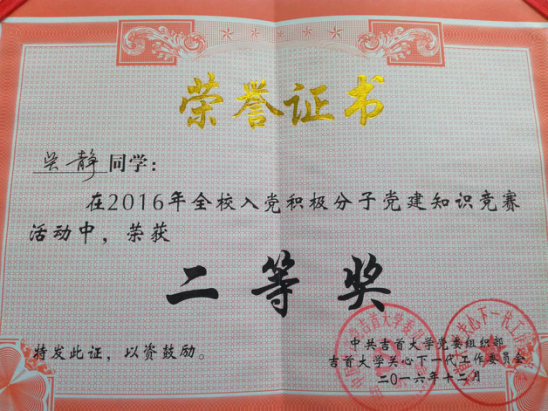 荣誉证书
吴静同学：
在2016年全校入党积极分子党建知识竞赛
活动中，荣获
二等奖
特发此证，以资鼓励。
中共吉首大学党委组织部
吉首大学关心下一代工作委员会
二〇一六年十二月